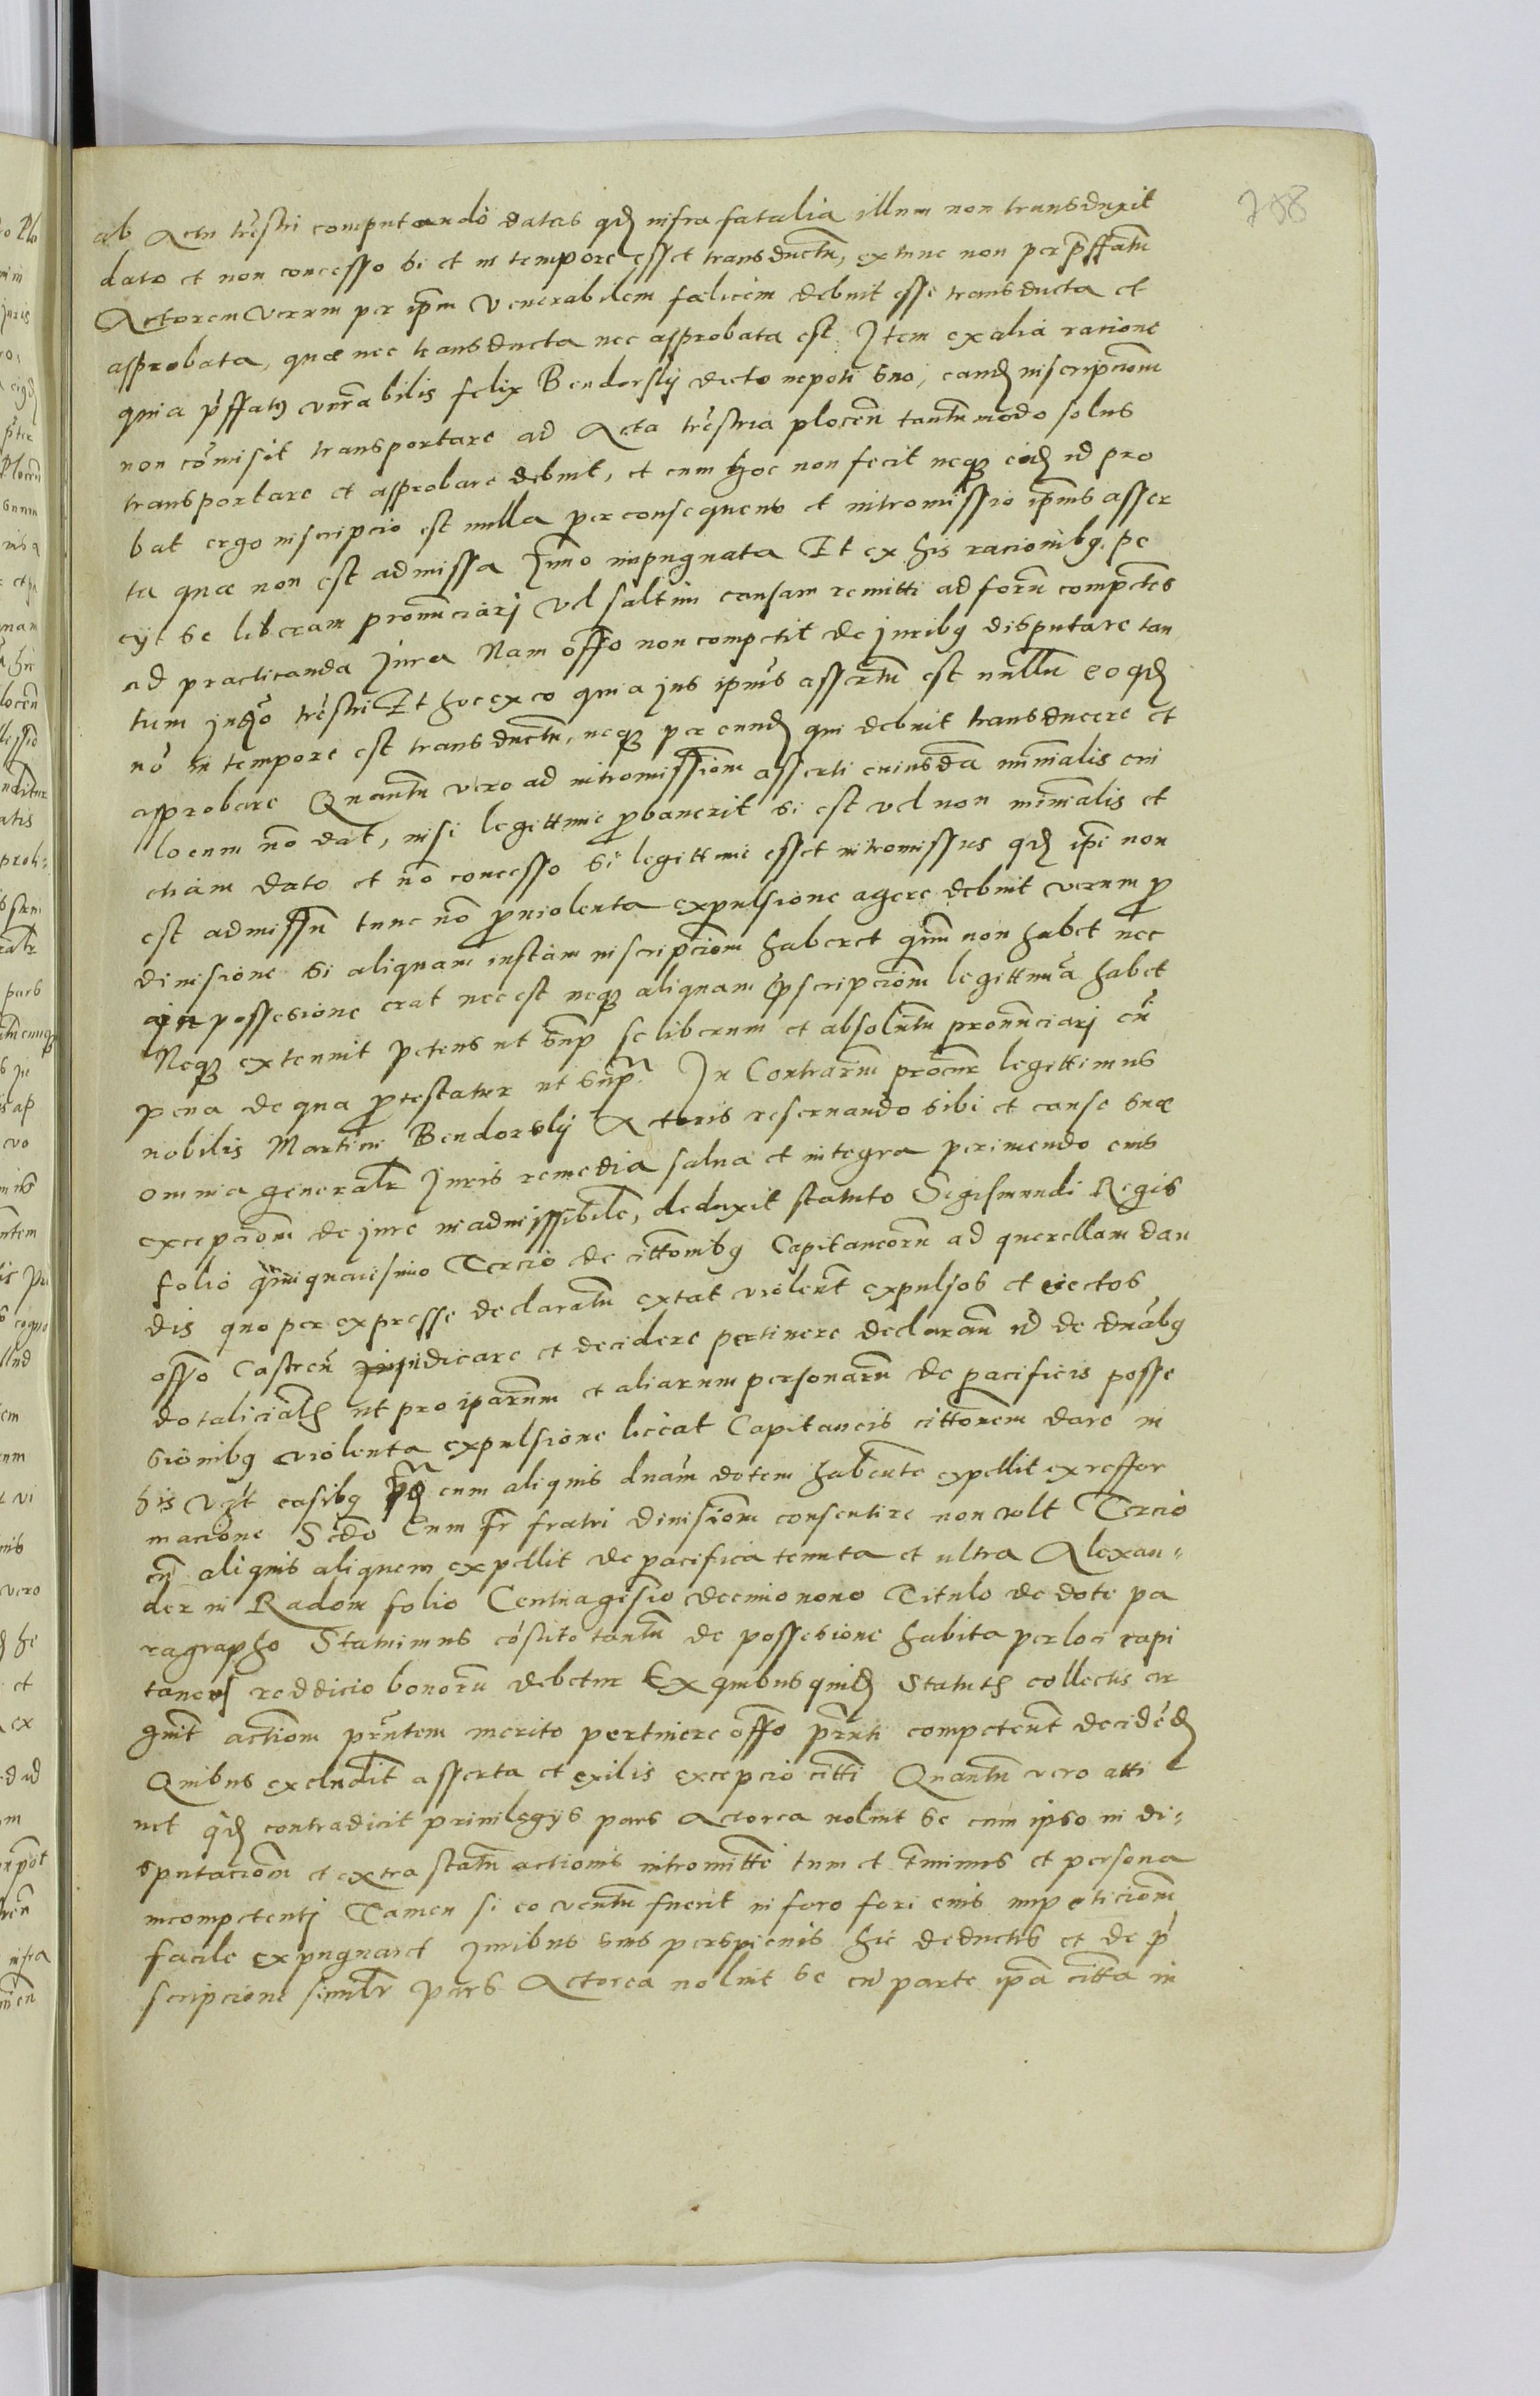 788
ab Actu trestri computando datas qd infra fatalia illum non transduxit
dato et non concesso si et in tempore esset transductu, extunc non per pffatu
Actorem verum per ipm venerabilem foelicem debuit esse transducta et
approbata, quae nec transducta nec approbata est. Item ex alia ratione
quia pffatus vnrabilis felix Bendorsky dicto nepoti suo, eand inscripcionem
non comisit transportare ad Acta trestria plocen tantummodo solus
transportare et approbare debuit, et cum hoc non fecit neque eiusd id pro
bat ergo inscripcio est nulla per consequens et intromissio ipius asser
ta quae non est admissa Immo impugnata Et ex his racionibus pe
cijt se liberam pronunciarj vel saltim causam remitti ad foru competes
ad practicanda Jura Nam offo non competit de juribus disputare tan
tum judo trestri Et hoc ex eo quia jus ipius assertu est nullu eo qd
no in tempore est transductu, neque per eund qui debuit transducere et
approbare Quantu vero ad intromissione asserti cuiusda minialis cui
locum no dat, nisi legittime probauerit si est vel non minialis et
etiam dato et no concesso si legittime esset intromissus qd ipe non
est admissu tunc no pro violenta expulsione agere debuit verum pro
diuisione si aliquam iustam inscripcione haberet quam non habet nec
in possesione erat nec est neque aliquam prescripcione legittima habet
Neque extenuit petens ut sup se liberum et absolutu pronunciarj cu
pena de qua protestatur ut sup. In Contrarium procur legittimus
nobilis Martini Bendorsky Actoris reseruando sibi et cause suae
omnia generalr Juris remedia salua et integra perimendo eius
excepcione de jure inadmissibile, deduxit statuto Sigismundi Regis
folio quinquuesimo Tercio de cittonibus Capitaneoru ad querellam dan
dis quo per expresse declaratu extat violent expulsos et eiectos
offo Castren judicare et decidere pertinere declaran id de duabus
dotalicialibus ut pro iparum et aliarum personaru de pacificis posse
sionibus violenta expulsione liceat Capitaneis cittonem dare in
his vczt casibus cum aliquis duam dotem habente expellit ex reffor
macione Scdo Cum fr fratri diuisione consentire non volt Tercio
cu aliquis aliquem expellit de pacifica tenuta et ultra Alexan-
der in Radom folio Centuagesimo decimo nono Titulo de dote pa
ragrapho Statuimus costito tantu de possesione habita per loci capi
taneos reddicio bonoru debetur Ex quibus quid Statutis collectis ar
guit actione pntem merito pertinere offo pnti competent decided
Quibus excludit asserta et exilis excepcio citti Quantu vero atti
net qd contradicit priuilegijs pars Actorea noluit se cum ipso in di-
sputacione et extra statu actionis intromitte tum et tminus et persona
incompetentj Tamen si eo ventu fuerit in foro fori eius impeticione
facile expugnaret Juribus suis perspicuis hic deductis et de p
scripcione similr pars Actorea noluit se cu parte ipa citta in